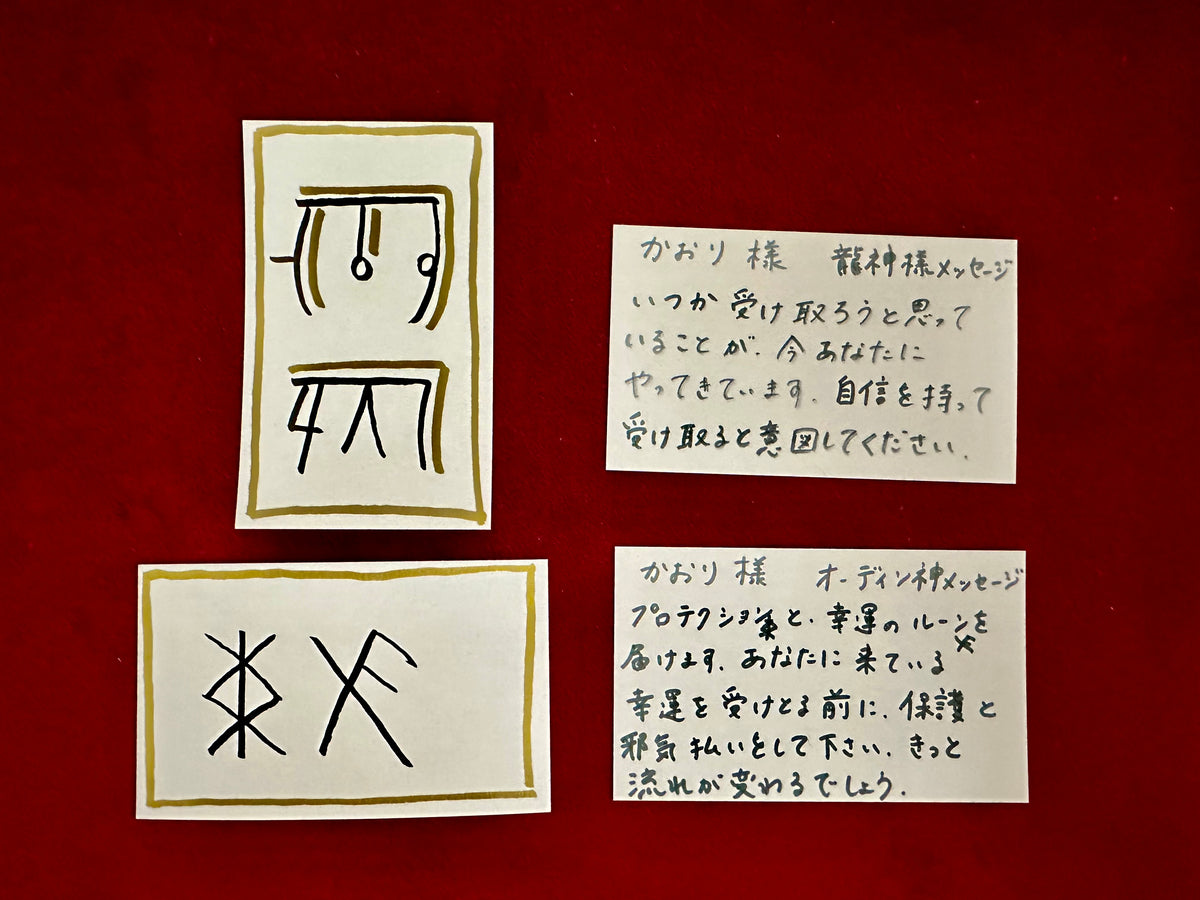 かおり様　龍神様メッセージ
いつか受け取ろうと思って
いることが、今あなたに
やってきています。自信を持って
受け取ると意図してください。
かおり様　オーディン神メッセージ
プロテクションと、幸運のルーンを
届けます。あなたに来ている
幸運を受けとる前に、保護と
邪気払いをして下さい。きっと
流れが変わるでしょう。